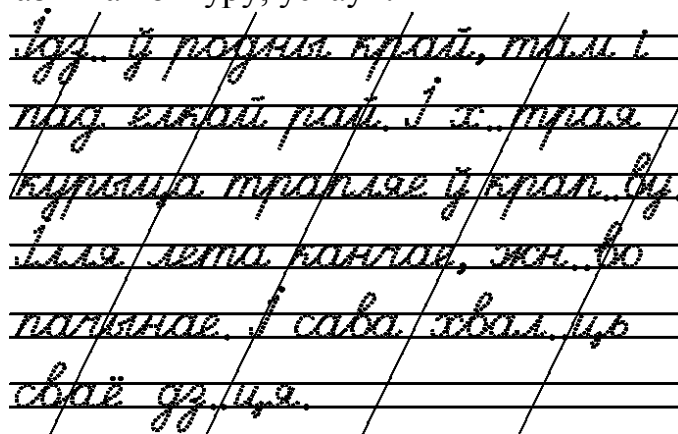 Ідз.. ў родны край, там і
пад елкай рай. І х..трая
курыца трапляе ў крап..ву.
Ілля лета канчае, жн..во
пачынае. І сава хвал..ць
сваё дз..ця.